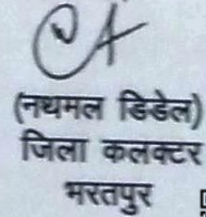 (नथमल डिडेल)
जिला कलक्टर
भरतपुर